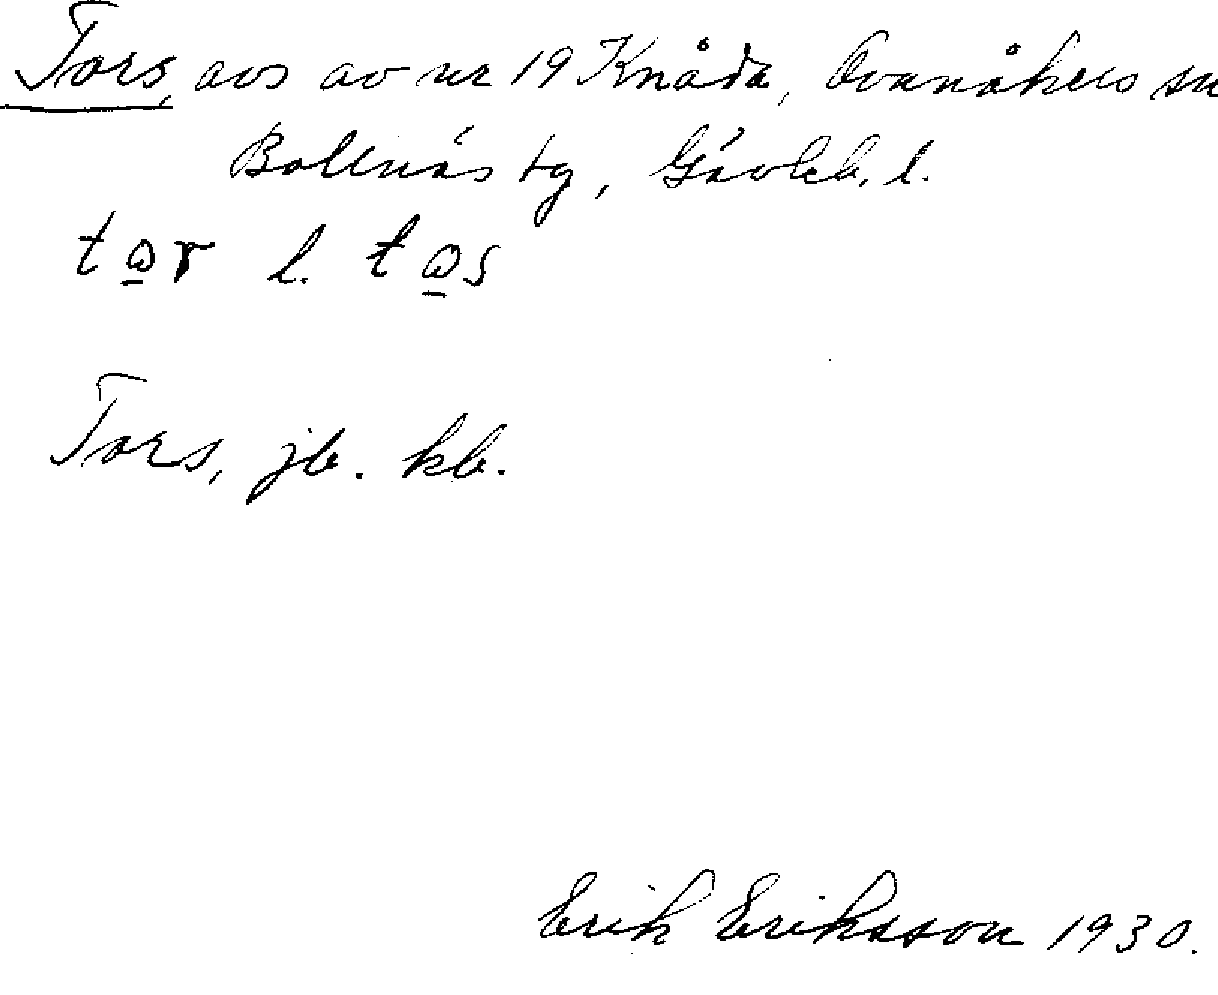 Tors, avs av nr 19 Knåda, Ovanåkers sn
Bollnäs tg, Gävleb. l.
tor l. tos
Tors, jb. kb.
Erik Eriksson 1930.